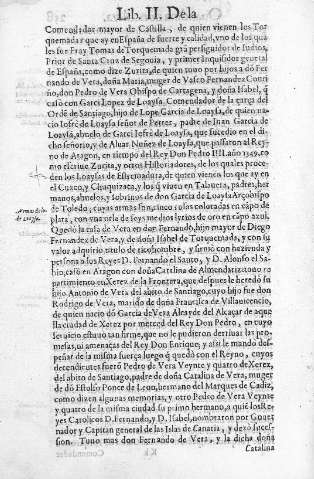 Lib. II. De la
Comendador mayor de Castilla, de quien vienen los Tor
quemadas que ay en España de suerte y calidad, vno de los qua
les fue Fray Tomas de Torquemada gra perseguidor de Iudios,
Prior de Santa Cruz de Segouia, y primer Inquisidor general
de España, como dize Zurita, de quien tuuo por hijos a dō Fer
nando de Vera, doña Maria, muger de Vasco Fernandez Corri
ño, don Pedro de Vera Obispo de Cartagena, y doña Isabel, q̄
casò con Garci Lopez de Loaysa, Comendador de la çarça del
Ordē de Santiago, hijo de Lope Garcia de Loaysa, de quien na
cio Iofrè de Loaysa señor de Petter, padre de Iuan Garcia de
Loaysa, abuelo de Garci Iofrè de Loaysa, que sucedio en el di
cho señorio, y de Aluar Nuñez de Loaysa, que passaron al Rey
no de Aragon, en tiempo del Rey Don Pedro
mo escriue Zurita, y otros Historiadores, de los quales proce
den los Loaysas de Estremadura, de quien vienen los que ay en
el Cuzco, y Chuquizaca, y los q̄ viuen en Talauera, padres, her
manos, abuelos, y sobrinos de don Garcia de Loaysa Arçobispo
de Toledo, cuyas armas son, cinco rosas coloradas en cāpo de
plata, con vna orla de seys medios lyrios de oro en cāpo azul.
Quedò la casa de Vera en don Fernando, hijo mayor de Diego
Fernandez de Vera, y de doña Isabel de Torquemada, y con su
valor adquirio titulo de ricohombre, y siruio con hazienda y
persona a los Reyes D. Fernando el Santo, y D. Alonso el Sa
bio, casò en Aragon con doña Catalina de Almendariz, tuuo re
partimiento en Xerez de la Frontera, que despues le heredò su
hijo Antonio de Vera del abito de Santiago, cuyo hijo fue don
Rodrigo de Vera, marido de doña Francisca de Villauicencio,
de quien nacio dō Garcia de Vera Alcayde del Alcaçar de aque
lla ciudad de Xerez por merced del Rey Don Pedro, en cuyo
seruicio estuuo tan firme, que no le pudieron derriuar las pro-
messas, ni amenaças del Rey Don Enrique, y assi le mando des-
peñar de la misma fuerça luego q̄ quedò con el Reyno, cuyos
decendientes fuerō Pedro de Vera Veynte y quatro de Xerez,
del abito de Santiago, padre de doña Catalina de Vera, muger
de dō Ponce de Leon, hermano del Marques de Cadiz,
como dizen algunas memorias, y otro Pedro de Vera Veynte
y quatro de la misma ciudad su primo hermano, a quiē los Re
yes Catolicos D. Fernando, y D. Isabel, nombraron por Gouer
nador y Capitan general de las Islas de Canaria, y dexò suces-
sion. Tuuo mas don Fernando de Vera, y la dicha doña
Catalina